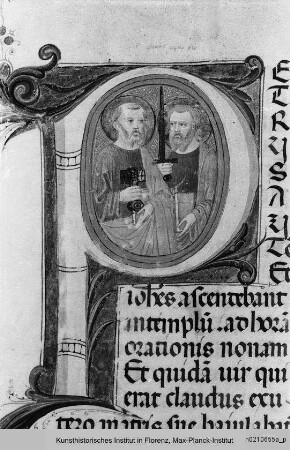 P
ETRUS AUTE
ioh̄es ascendebant
in templū. ad horā
orationis nonam
Et quidā uir qui
erat claudus ex u
tero matris sue baiulabat
Kunsthistorisches Institut in Florenz, Max-Planck-Institut